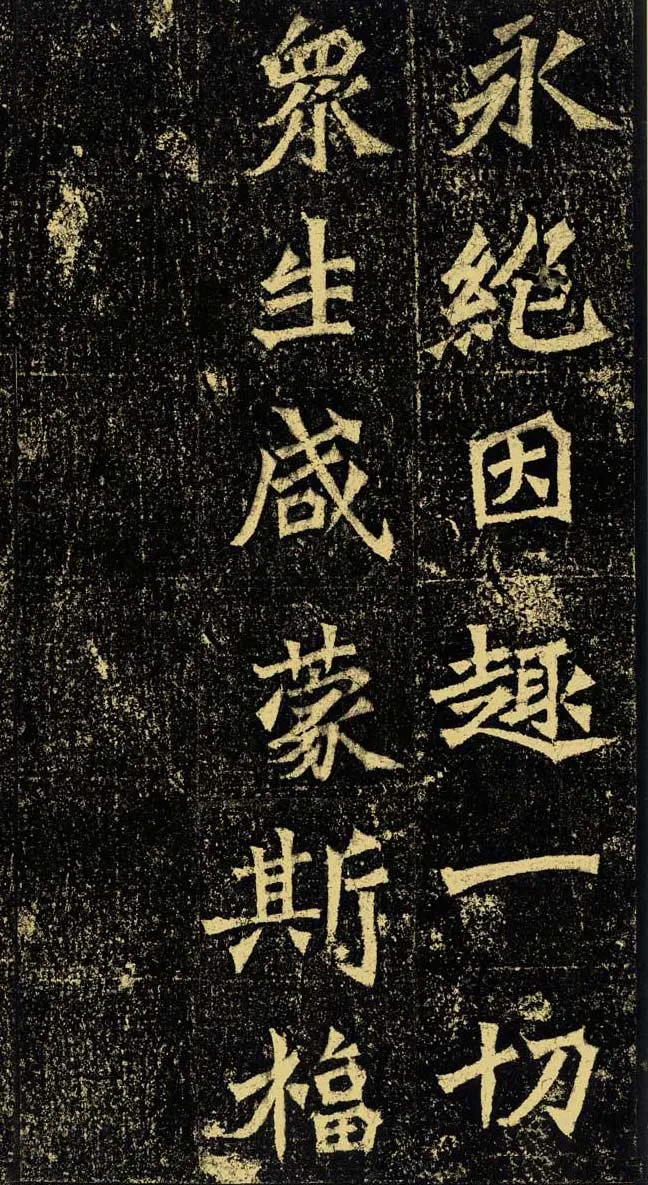 永絕因趣一切
眾生咸蒙斯福